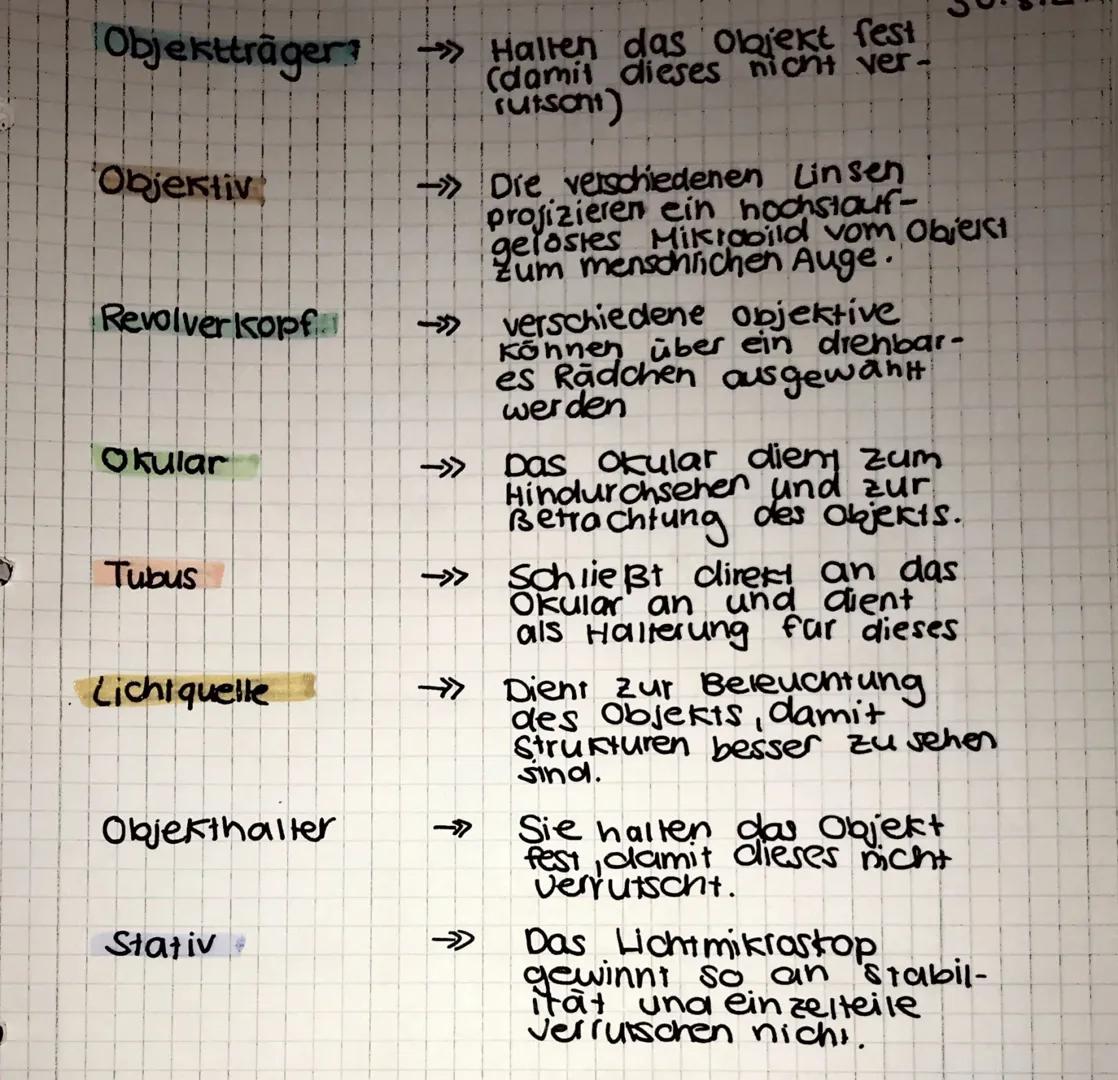 Objektträger → Halten das Objekt fest
(damit dieses nicht ver-
rutscht)
Objektiv → Die verschiedenen Linsen
projizieren ein höchstauf-
gelöstes Mikrobild vom Objekt
zum menschlichen Auge.
Revolverkopf → verschiedene Objektive
können über ein drehbar-
es Rädchen ausgewählt
werden
Okular → Das Okular dient zum
Hindurchsehen und zur
Betrachtung des Objekts.
Tubus → Schließt direkt an das
Okular an und dient
als Halterung für dieses
Lichtquelle → Dient zur Beleuchtung
des Objekts, damit
Strukturen besser zu sehen
sind.
Objekthalter → Sie halten das Objekt
fest, damit dieses nicht
verrutscht.
Stativ → Das Lichtmikroskop
gewinnt so an Stabil-
ität und einzelteile
verrutschen nicht.